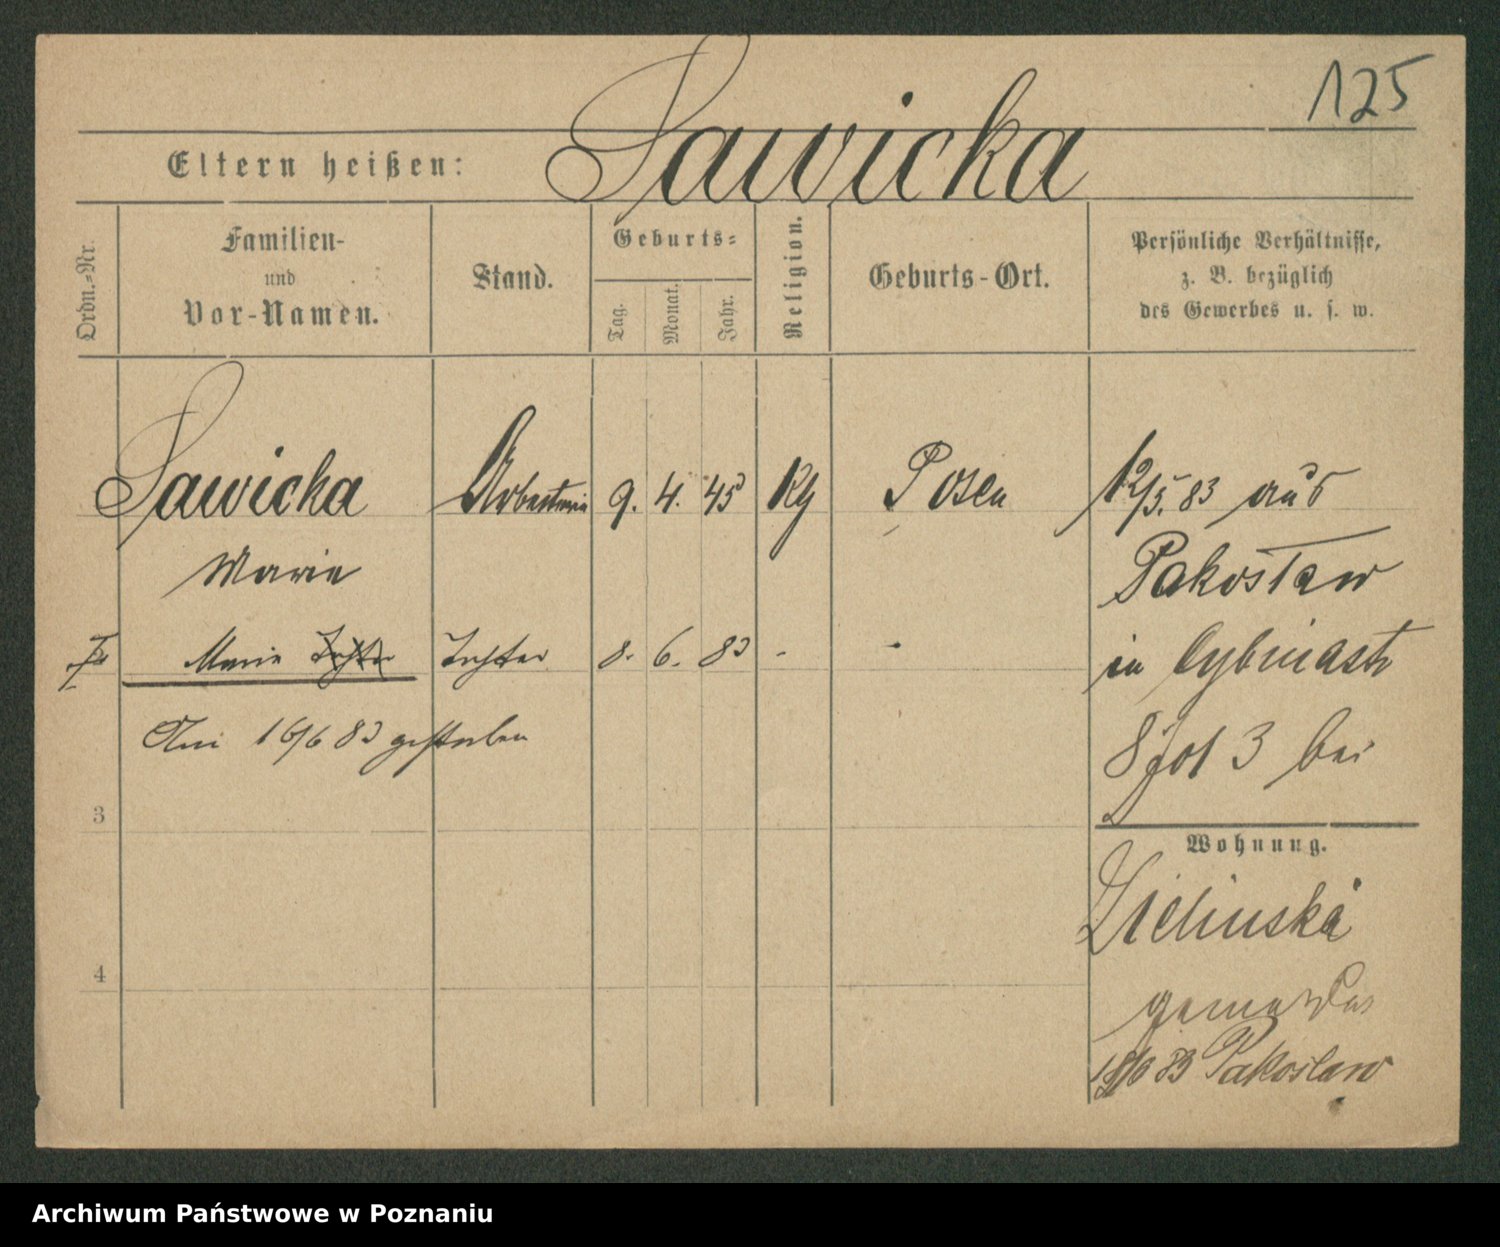 125
Eltern heißen: Sawicka
Ordn.-Nr.
Familien-
und
Vor-Namen.
Stand.
Geburts-
Tag.
Monat.
Jahr.
Religion.
Geburts-Ort.
Persönliche Verhältnisse,
z. B. bezüglich
des Gewerbes u. s. w.
Sawicka Arbeiterin 9. 4. 45 Kg Posen 12/5. 83 aus
Marie Pakosław
Marie Tochter Tochter 8. 6. 83 - - in Cybinastr
Am 16/6 83 gestorben 8 3 bei
3
Wohnung.
Zielinska
4
83 Pakoslaw
Archiwum Państwowe w Poznaniu